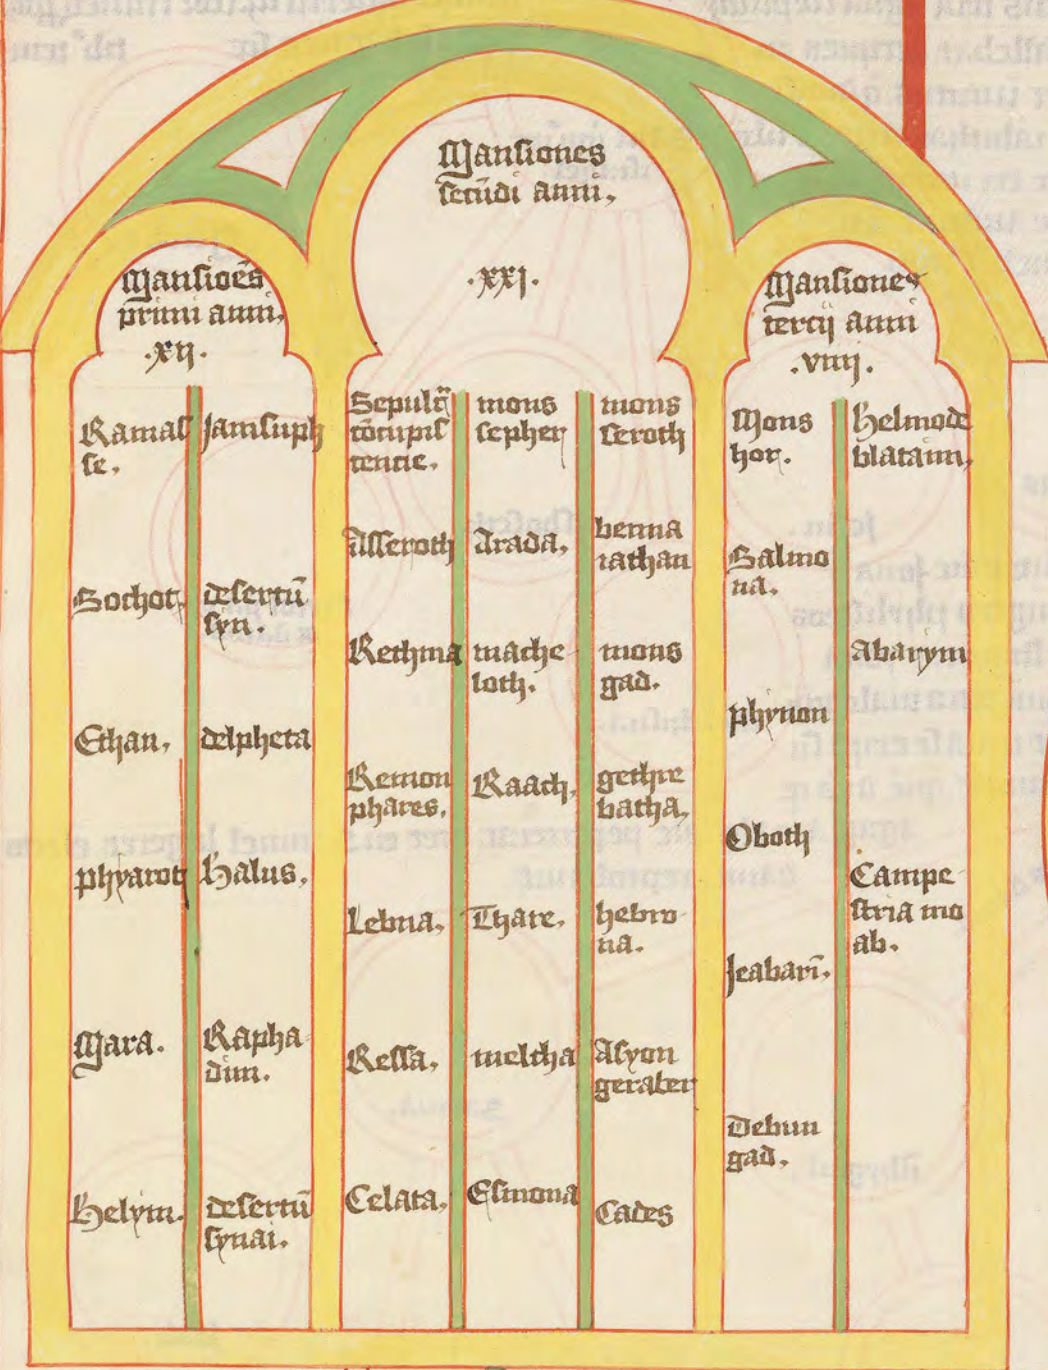 Mansioēs
primi anni,
.xij.
Ramas
se,
Sochot,
Ethan,
phyarot
Mara.
Helym.
Jamsuph
desertū
syn.
delpheta
Halus,
Rapha
dim.
desertū
synai.
Mansiones
secūdi anni,
.xxj.
Sepulcͣ
cōcupis
tencie,
Asseroth
Rethma
Remon
phares,
Lebna,
Ressa,
Celata,
mons
sepher
Arada,
mache
loth.
Raath,
Thare,
meltha
Esmona
mons
seroth
benna
iathan
mons
gad.
gethre
batha,
hebro
na.
Asyon
geraber
Cades
Mansiones
tercij anni
.viiij.
Mons
hor.
Salmo
na.
phynon
Oboth
Jeabarī.
Debun
gad,
Helmode
blataim,
Abarym
Campe
stria mo
ab.